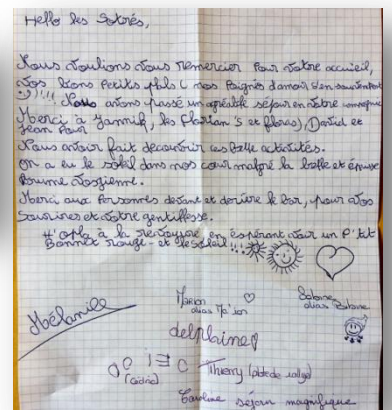 Hello les Sotrés,
Nous voulions vous remercier pour votre accueil,
vos bons petits plats ( nos poignés d'amour s'en souviennent
:-)!!! Nous avons passé un agréable séjour en votre compagnie
Merci à Yannick, les Florian's et flores), David et
Jean Pour
Nous avoir fait découvrir ces belle activités.
On a eu le soleil dans nos cœur malgré la belle et épaisse
Brume vosgienne.
Merci aux Personnes devant et derrière le bar, pour vos
sourires et votre gentillesse.
à la revoyure en espérant voir un P'tit
Bonnet rouge - et le soleil!!!
Marion
alias Ma'ion
Sabine
alias
Mélanie
delphine
Thierry
(cédric)
Caroline séjour magnifique